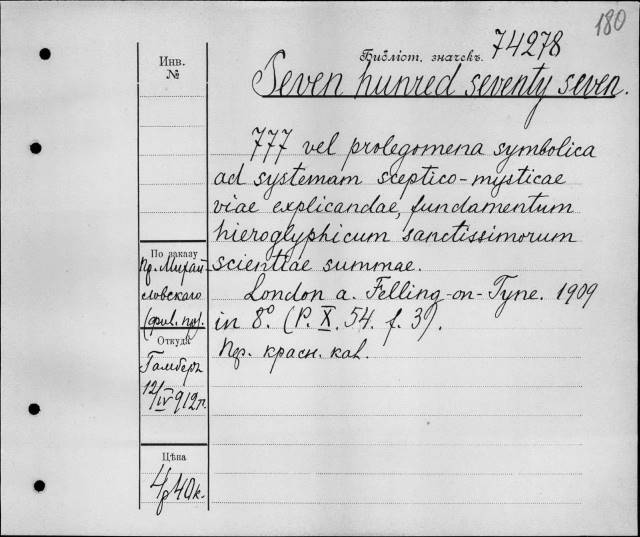 180
Библіот. значекъ. 74278
Инв.
№
Seven hunred seventy seven.
777 vel prolegomena symbolica
ad systemam sceptico-mysticae
viae explicandae, fundamentum
hieroglyphicum sanctissimorum
scientiae summae.
London a. Felling-on-Tyne. 1909
in 8º. (P. X. 54. f. 3).
Пр. красн. кав.
По заказу
пр. Михай-
ловскаго
Откуда
Гамберъ
12/IV 912 г.
Цѣна
4 р 40 к.